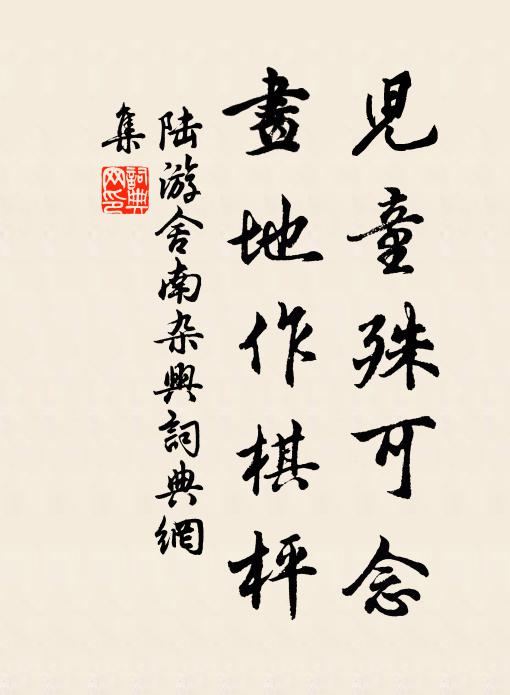 児童殊可念
畫地作棋枰
陆游舍南杂興詞典網
集
詞典网印